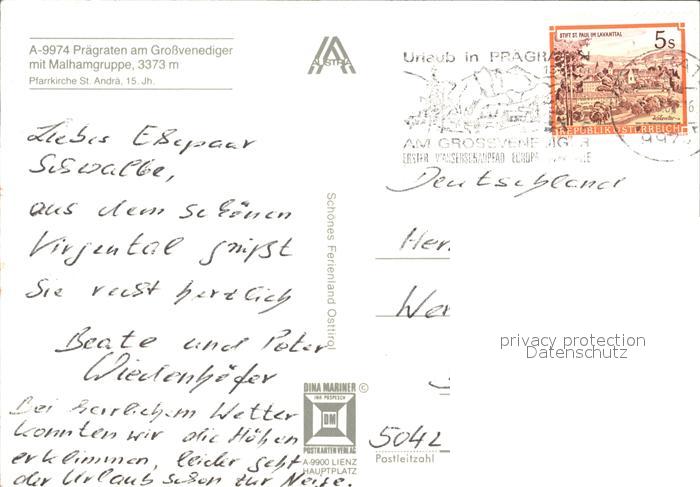 A-9974 Prägraten am Großvenediger
mit Malhamgruppe, 3373 m
Pfarrkirche St. Andrä, 15. Jh.
AUSTRIA
Urlaub in PRÄGRA
AM GROSSVENEDIGER
ERSTER WASSERSCHAUPFAD EUROPA
STIFT ST. PAUL IM LAVANTTAL
5s
REPUBLIK ÖSTERREICH
997
Liebes Ehepaar
Schwalbe,
aus dem schönen
Virgental grüßt
Sie recht herzlich
Beate und Peter
Wiedenhöfer
Bei herrlichem Wetter
konnten wir die Höhen
erklimmen, leider geht
der Urlaub schon zur Neige.
Schönes Ferienland Osttirol
DINA MARINER ©
INH. POSPESCH
DM
POSTKARTENVERLAG
A-9900 LIENZ
HAUPTPLATZ
Deutschland
Her
Wer
5042
Postleitzahl
privacy protection
Datenschutz